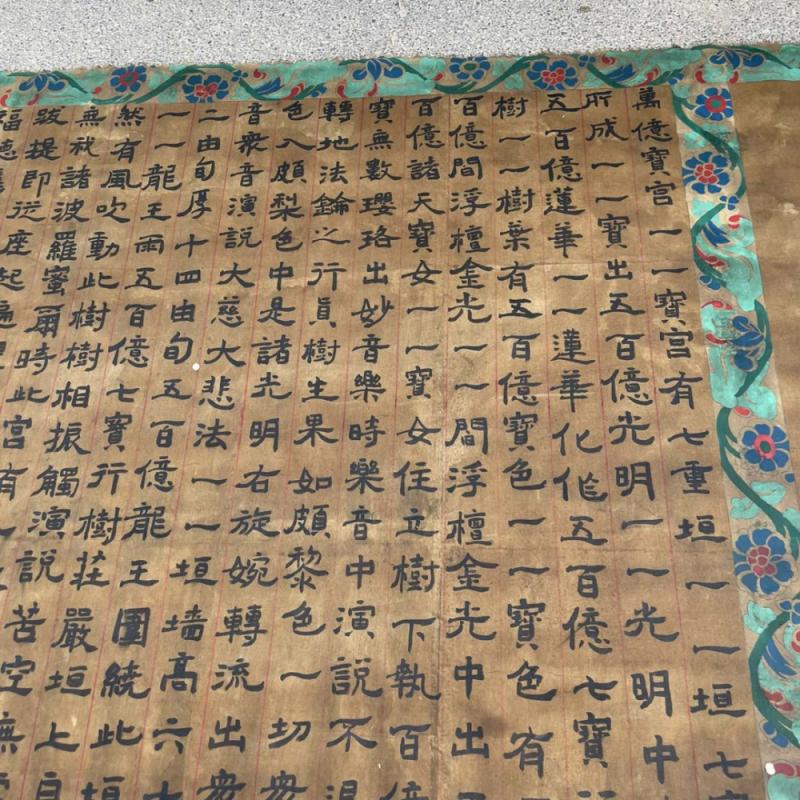 萬億寶宮一一寶宮有七重垣一一垣七寶
所成一一寶出五百億光明一一光明中
五百億蓮華一一蓮華化作五百億七寶
樹一一樹葉有五百億寶色一一寶色有
百億間浮檀金光一一間浮檀金光中出五
百億諸天寶女一一寶女住立樹下執百億
寶無數瓔珞出妙音樂時樂音中演說不退
轉地法錀之行真樹生果如頗黎色一切衆
色入頗梨色中是諸光明右旋婉轉流出衆
音衆音演說大慈大悲法一一垣墻高六十
二由旬厚十四由旬五百億龍王圍繞此垣
一一龍王雨五百億七寶行樹莊嚴垣上自
然有風吹動此樹樹相振觸演說苦空無
無我諸波羅蜜爾時此宮有一
跋提即從座起
福德